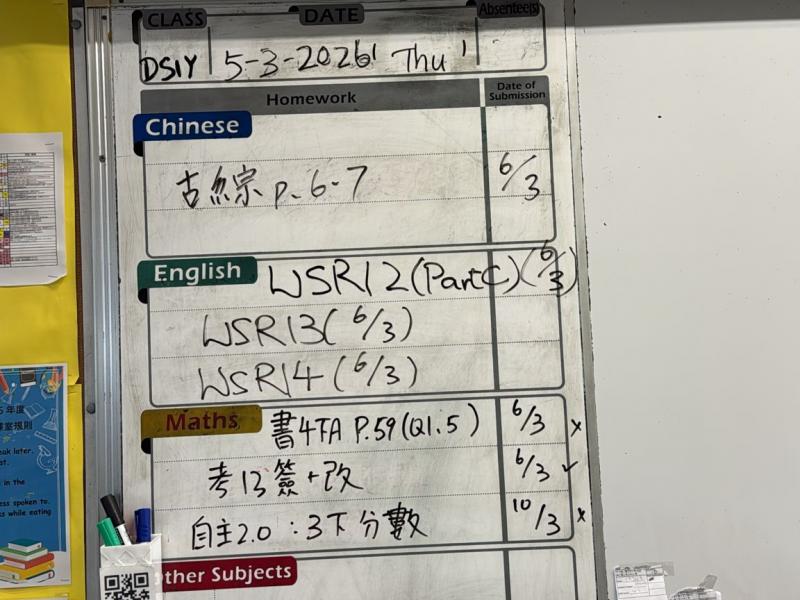 CLASS DATE Absentee(s)
DS1Y 5-3-2026 Thu
Homework Date of Submission
Chinese
古綜 p. 6-7 6/3
English WSR12 (Part C) (6/3)
WSR13 (6/3)
WSR14 (6/3)
Maths 書4TA P.59 (Q1.5) 6/3 ×
考13簽+改 6/3 ✓
自主2.0：3下分數 10/3 ×
ther Subjects
年度
室規則
eak later.
at.
in the
ess spoken to.
ks while eating